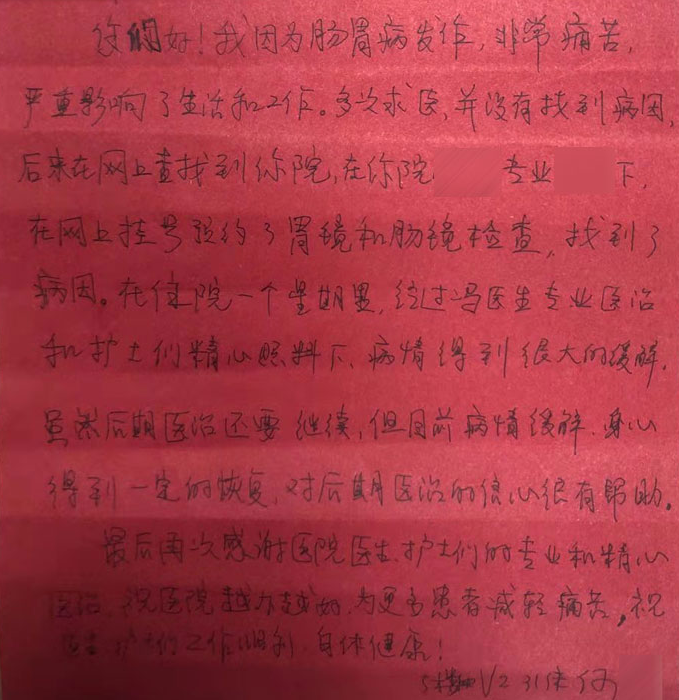 你们好！我因为肠胃病发作，非常痛苦，
严重影响了生活和工作。多次求医，并没有找到病因，
后来在网上查找到你院，在你院 专业 下，
在网上挂号预约了胃镜和肠镜检查，找到了
病因。在住院一个星期里，经过冯医生专业医治
和护士们精心照料下、病情得到很大的缓解，
虽然后期医治还要继续，但目前病情缓解、身心
得到一定的恢复，对后期医治的信心很有帮助。
最后再次感谢医院医生、护士们的专业和精心
医治，祝医院越办越好，为更多患者减轻痛苦，祝
医生护士们工作顺利，身体健康！
1/2 31床 何